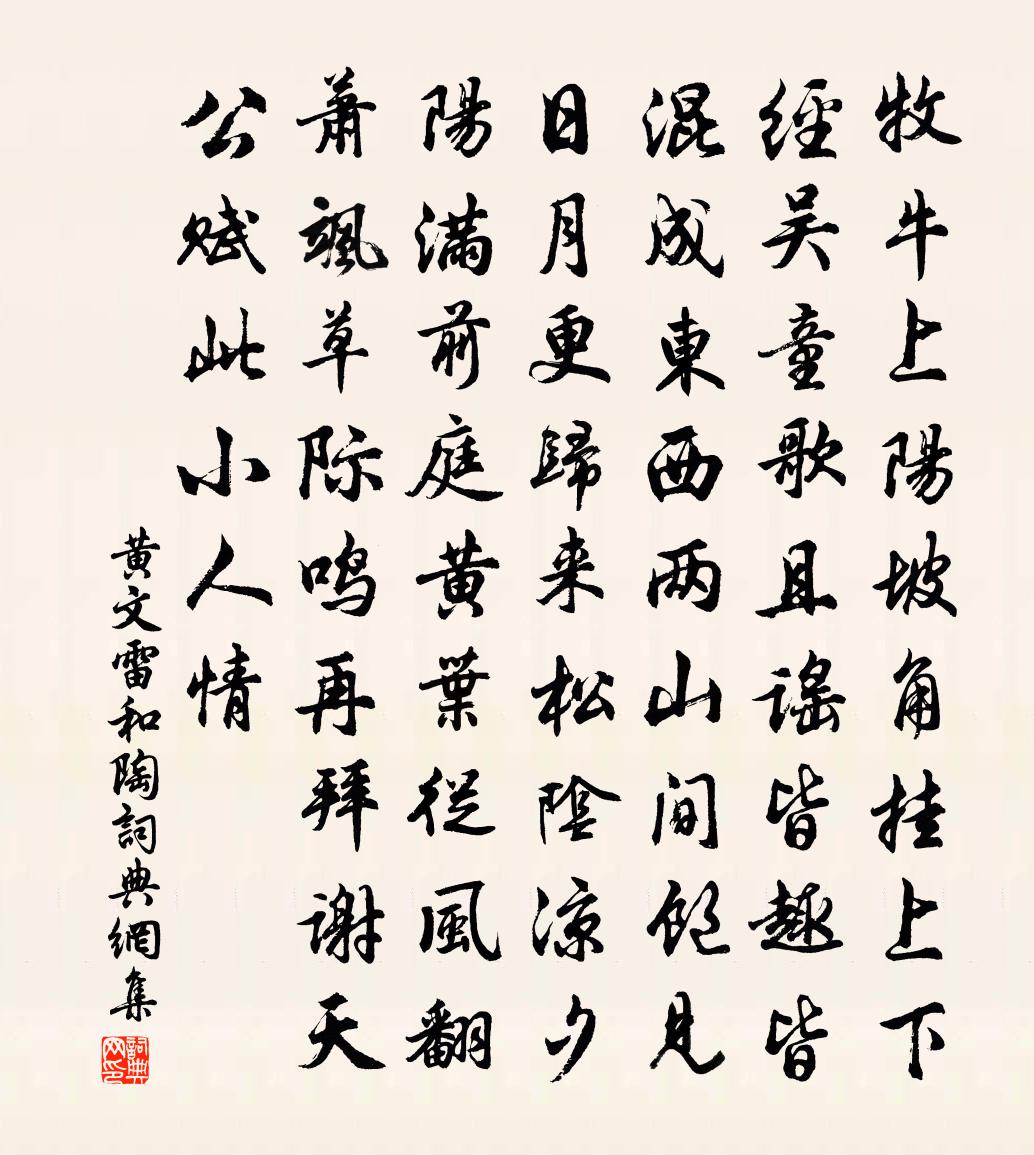 牧牛上陽坡角挂上下
經吴童歌且謡皆趣皆
混成東西两山间飽見
日月更歸来松陰凉夕
陽满前庭黄葉從風翻
蕭颯草际鸣再拜谢天
公赋此小人情
黄文雷和陶詞典網集
詞典网印